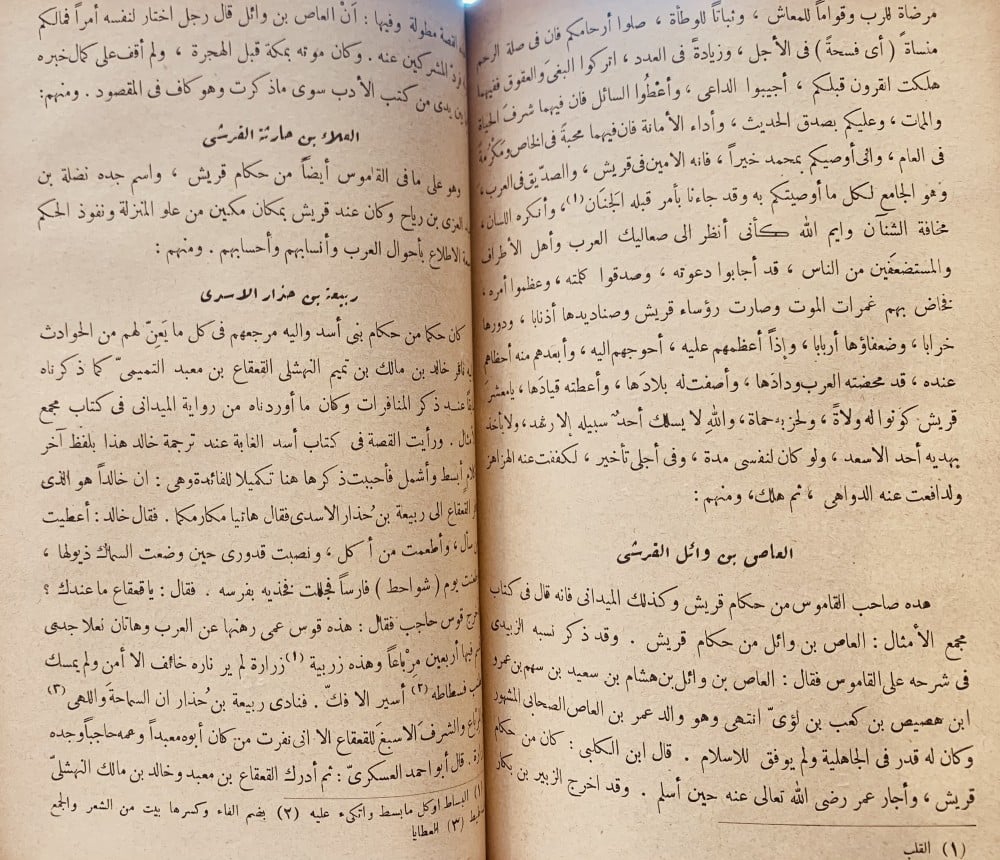 مرضاة للرب وقواماً للمعاش ، وثباتاً للوطأة ، صلوا أرحامكم فان فى صلة الرحم
منساة ( أى فسحة ) فى الأجل ، وزيادة فى العدد ، اتركوا البغى والعقوق ففيهما
هلكت القرون قبلكم ، أجيبوا الداعى ، وأعْطُوا السائل فان فيهما شرف الحياة
والممات ، وعليكم بصدق الحديث ، وأداء الأمانة فان فيهما محبةً فى الخاص ومَكْرُمةً
فى العام ، وانى أوصيكم بمحمد خيراً ، فانه الامين فى قريش ، والصدّيق فى العرب،
وهو الجامع لكل ما أوصيتكم به وقد جاءنا بأمر قبله الجَنَان (١)، وأنكره اللسان،
مخافة الشنآن وايم الله كأنى أنظر الى صعاليك العرب وأهل الأطراف
والمستضعَفين من الناس ، قد أجابوا دعوته ، وصدقوا كلمته ، وعظموا أمره ،
نخاض بهم غمرات الموت وصارت رؤساء قريش وصناديدها أذنابا ، ودورها
خرابا ، وضعفاؤها أربابا ، وإذاً أعظمهم عليه ، أحوجهم اليه ، وأبعدهم منه أحظاهم
عنده ، قد محضته العرب ودادَها ، وأصفت له بلادَها ، وأعطته قيادَها ، يامعشر
قريش كونوا له ولاةً ، ولحزبه حماة ، والله لا يسلك أحدٌ سبيله إلا رشد ، ولا يأخذ
بهديه أحد الا سعد ، ولو كان لنفسى مدة ، وفى أجلى تأخير ، لكففت عنه الهزاهز
ولدافعت عنه الدواهى ، ثم هلك، ومنهم :
العاص بن وائل القرشى
هده صاحب القاموس من حكام قريش وكذلك الميدانى فانه قال فى كتاب
مجمع الأمثال : العاص بن وائل من حكام قريش . وقد ذكر نسبه الزبيدى
فى شرحه على القاموس فقال : العاص بن وائل بن هشام بن سعيد بن سهم بن عمرو
ابن هصيص بن كعب بن لؤىّ انتهى وهو والد عمر بن العاص الصحابى المشهور
وكان له قدر فى الجاهلية ولم يوفق للاسلام . قال ابن الكلبى : كان من حكام
قريش ، وأجار عمر رضى الله تعالى عنه حين أسلم . وقد اخرج الزبير بن بكار
(١) القلب
القصة مطولة وفيها : أنّ العاص بن وائل قال رجل اختار لنفسه أمراً فمالكم
فردّ المشركين عنه . وكان موته بمكة قبل الهجرة ، ولم أقف على كمال خبره
بين يدى من كتب الأدب سوى ماذكرت وهو كاف فى المقصود . ومنهم:
العلاء بن حارثة القرشى
وهو على ما فى القاموس أيضاً من حكام قريش ، واسم جده نضلة بن
العزى بن رياح وكان عند قريش بمكان مكين من علو المنزلة ونفوذ الحكم
الاطلاع بأحوال العرب وأنسابهم وأحسابهم . ومنهم :
ربيعة بن حذار الاسدى
كان حكما من حكام بنى أسد واليه مرجعهم فى كل ما يَعِنّ لهم من الحوادث
نافر خالد بن مالك بن تميم النهشلى القعقاع بن معبد التميمىّ كما ذكرناه
عند ذكر المنافرات وكان ما أوردناه من رواية الميدانى فى كتاب مجمع
الأمثال . ورأيت القصة فى كتاب أسد الغابة عند ترجمة خالد هذا بلفظ آخر
أبسط وأشمل فأحببت ذكرها هنا تكميلا للفائدة وهى : ان خالداً هو الذى
القعقاع الى ربيعة بن حُذار الاسدى فقال هاتيا مكارمكما . فقال خالد : أعطيت
سأل ، وأطعمت من أكل ، ونصبت قدورى حين وضعت السماك ذيولها ،
يوم ( شواحط ) فارساً فجللت نخذيه بفرسه . فقال : ياقعقاع ما عندك ؟
قوس حاجب فقال : هذه قوس عمى رهنها عن العرب وهاتان نعلا جدى
فيها أربعين مِرْباعاً وهذه زربية (١) زرارة لم ير ناره خائف الا أمن ولم يمسك
فسطاطه (٢) أسير الا فكّ . فنادى ربيعة بن حُذار ان السماحة واللهى (٣)
والشرف الاسبغ للقعقاع الا انى نفرت من كان أبوه معبداً وعمه حاجباً وجده
. قال أبو احمد العسكرىّ : ثم أدرك القعقاع بن معبد وخالد بن مالك النهشلىّ
(١) البساط أو كل ما بسط واتكىء عليه (٢) بضم الفاء وكسرها بيت من الشعر والجمع
(٣) العطايا